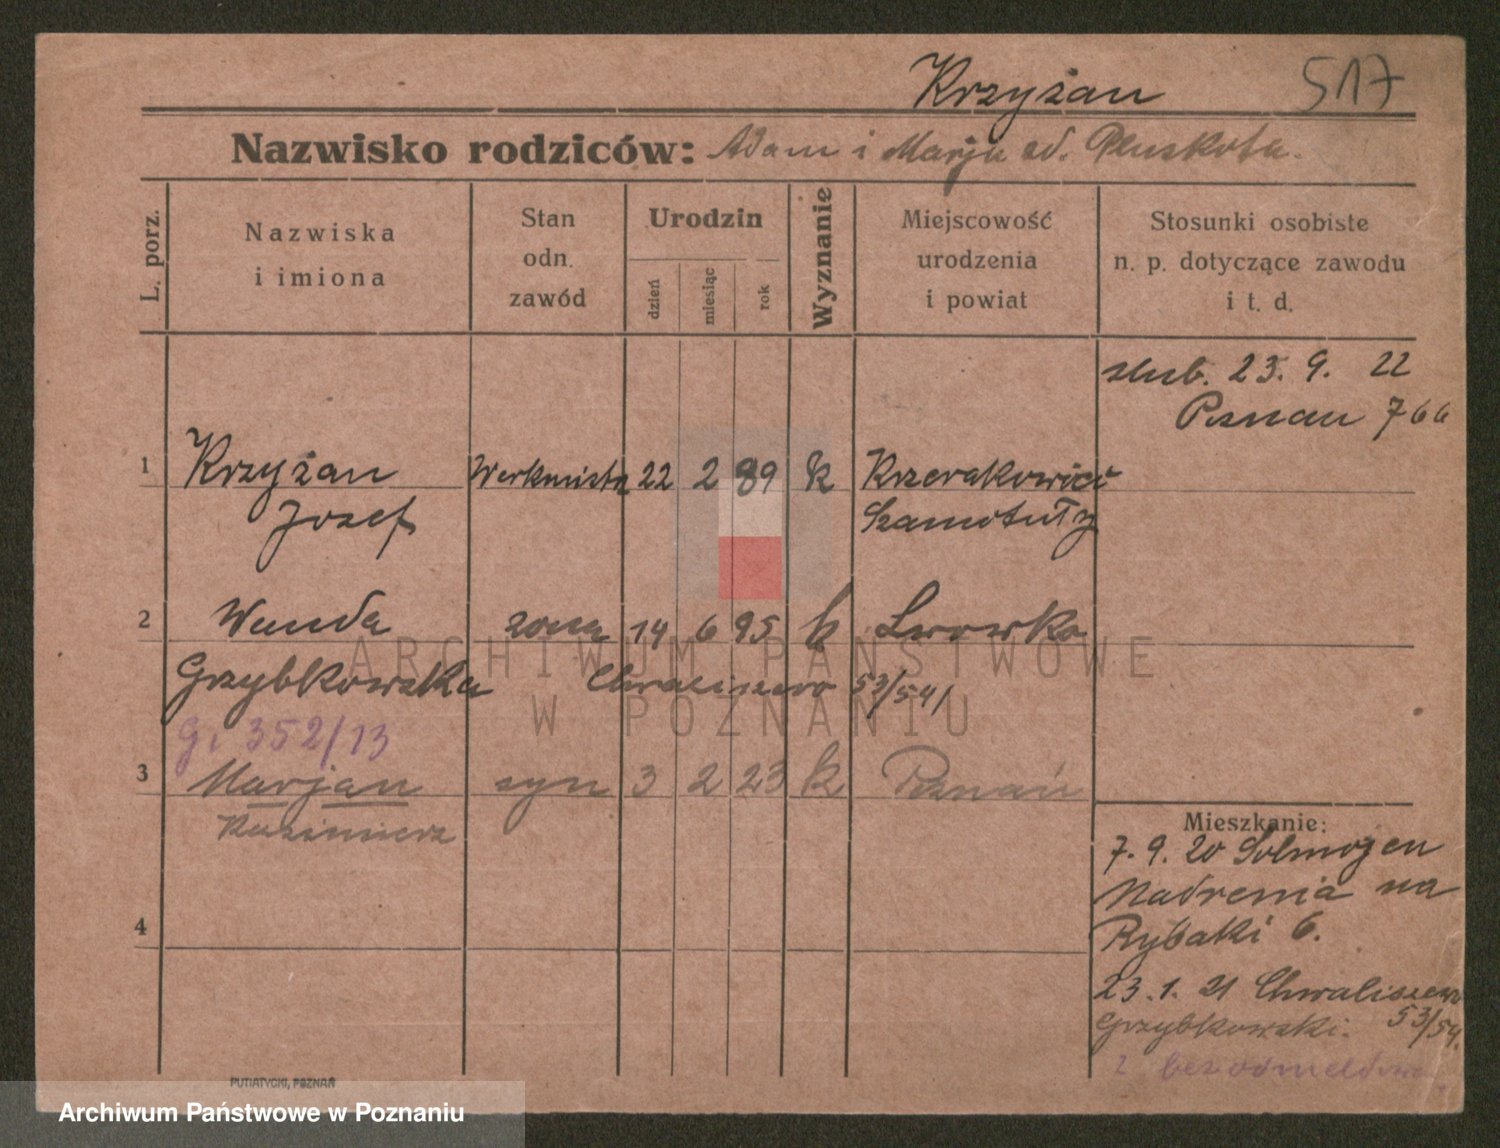 Krzyżan 517
Nazwisko rodziców: Adam i Marja zd. Pluskota.
L. porz.
Nazwiska
i imiona
Stan
odn.
zawód
Urodzin
dzień
miesiąc
rok
Wyznanie
Miejscowość
urodzenia
i powiat
Stosunki osobiste
n. p. dotyczące zawodu
i t. d.
slub. 23. 9. 22
Poznan 766
1 Krzyżan Werkmistrz 22 2 89 k
Jozef Szamotuły
2 Wanda zona 14 6 95 k Lwowko
Grzybkowska Chwaliszewo 53/54/
G. 352/13
3 Marjan syn 3 2 23 k Poznań
Kazimierz
4
Mieszkanie:
7. 9. 20
Nadrenia na
Rybaki 6.
23. 1. 21 Chwaliszewo
Grzybkowski. 53/54.
PUTIATYCKI, POZNAŃ
ARCHIWUM PAŃSTWOWE
W POZNANIU
Archiwum Państwowe w Poznaniu